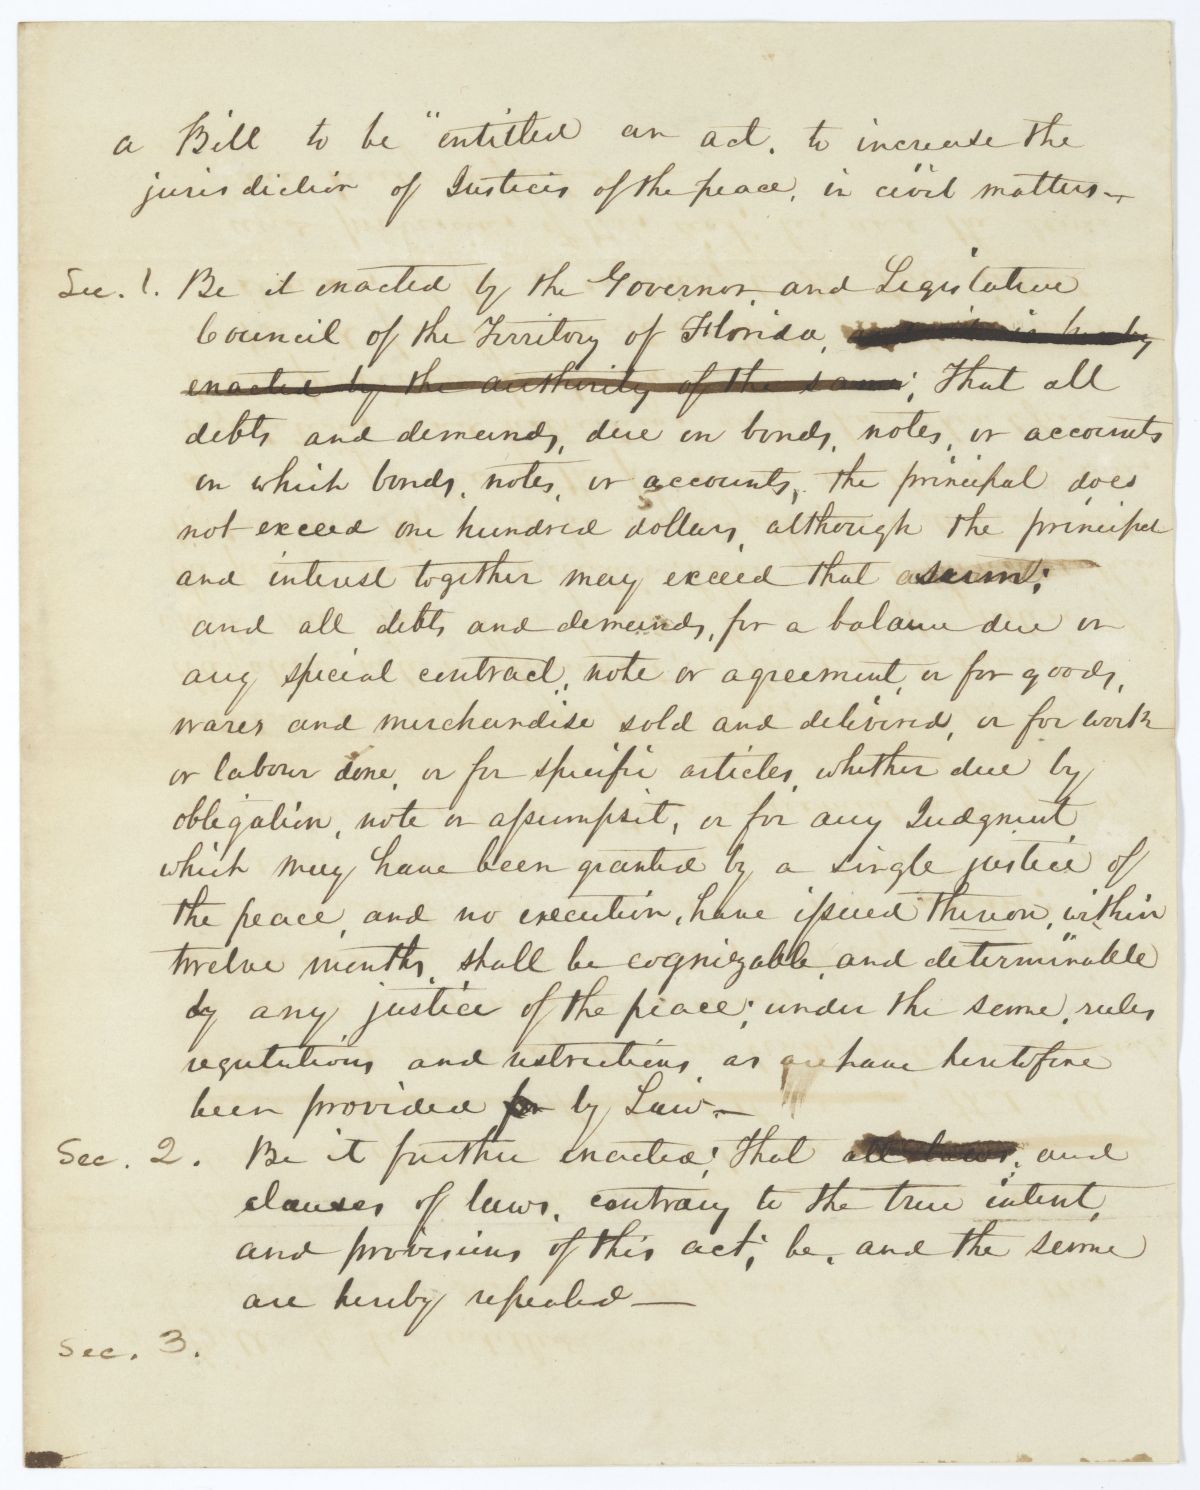 a Bill to be "entitled an act, to increase the
jurisdiction of Justices of the peace, in civil matters—
Sec. 1. Be it enacted by the Governor, and Legislative
Council of the Territory of Florida, and it is hereby
enacted by the authority of the same; That all
debts and demands, due on bonds, notes, or accounts
on which bonds, notes, or accounts, the principal does
not exceed one hundred dollars, although the principal
and interest together may exceed that sum;
and all debts and demands, for a balance due on
any special contract, note or agreement, or for goods,
wares and merchandise sold and delivered, or for work
or labour done, or for specific articles, whether due by
obligation, note or assumpsit, or for any Judgment,
which may have been granted by a single justice of
the peace, and no execution, have issued thereon, within
twelve months, shall be cognizable, and determinable
by any justice of the peace; under the same, rules
regulations and restrictions as have heretofore
been provided for by Law—
Sec. 2. Be it further enacted; That all laws, and
clauses of laws, contrary to the true intent,
and provisions of this act; be, and the same
are hereby repealed—
Sec. 3.